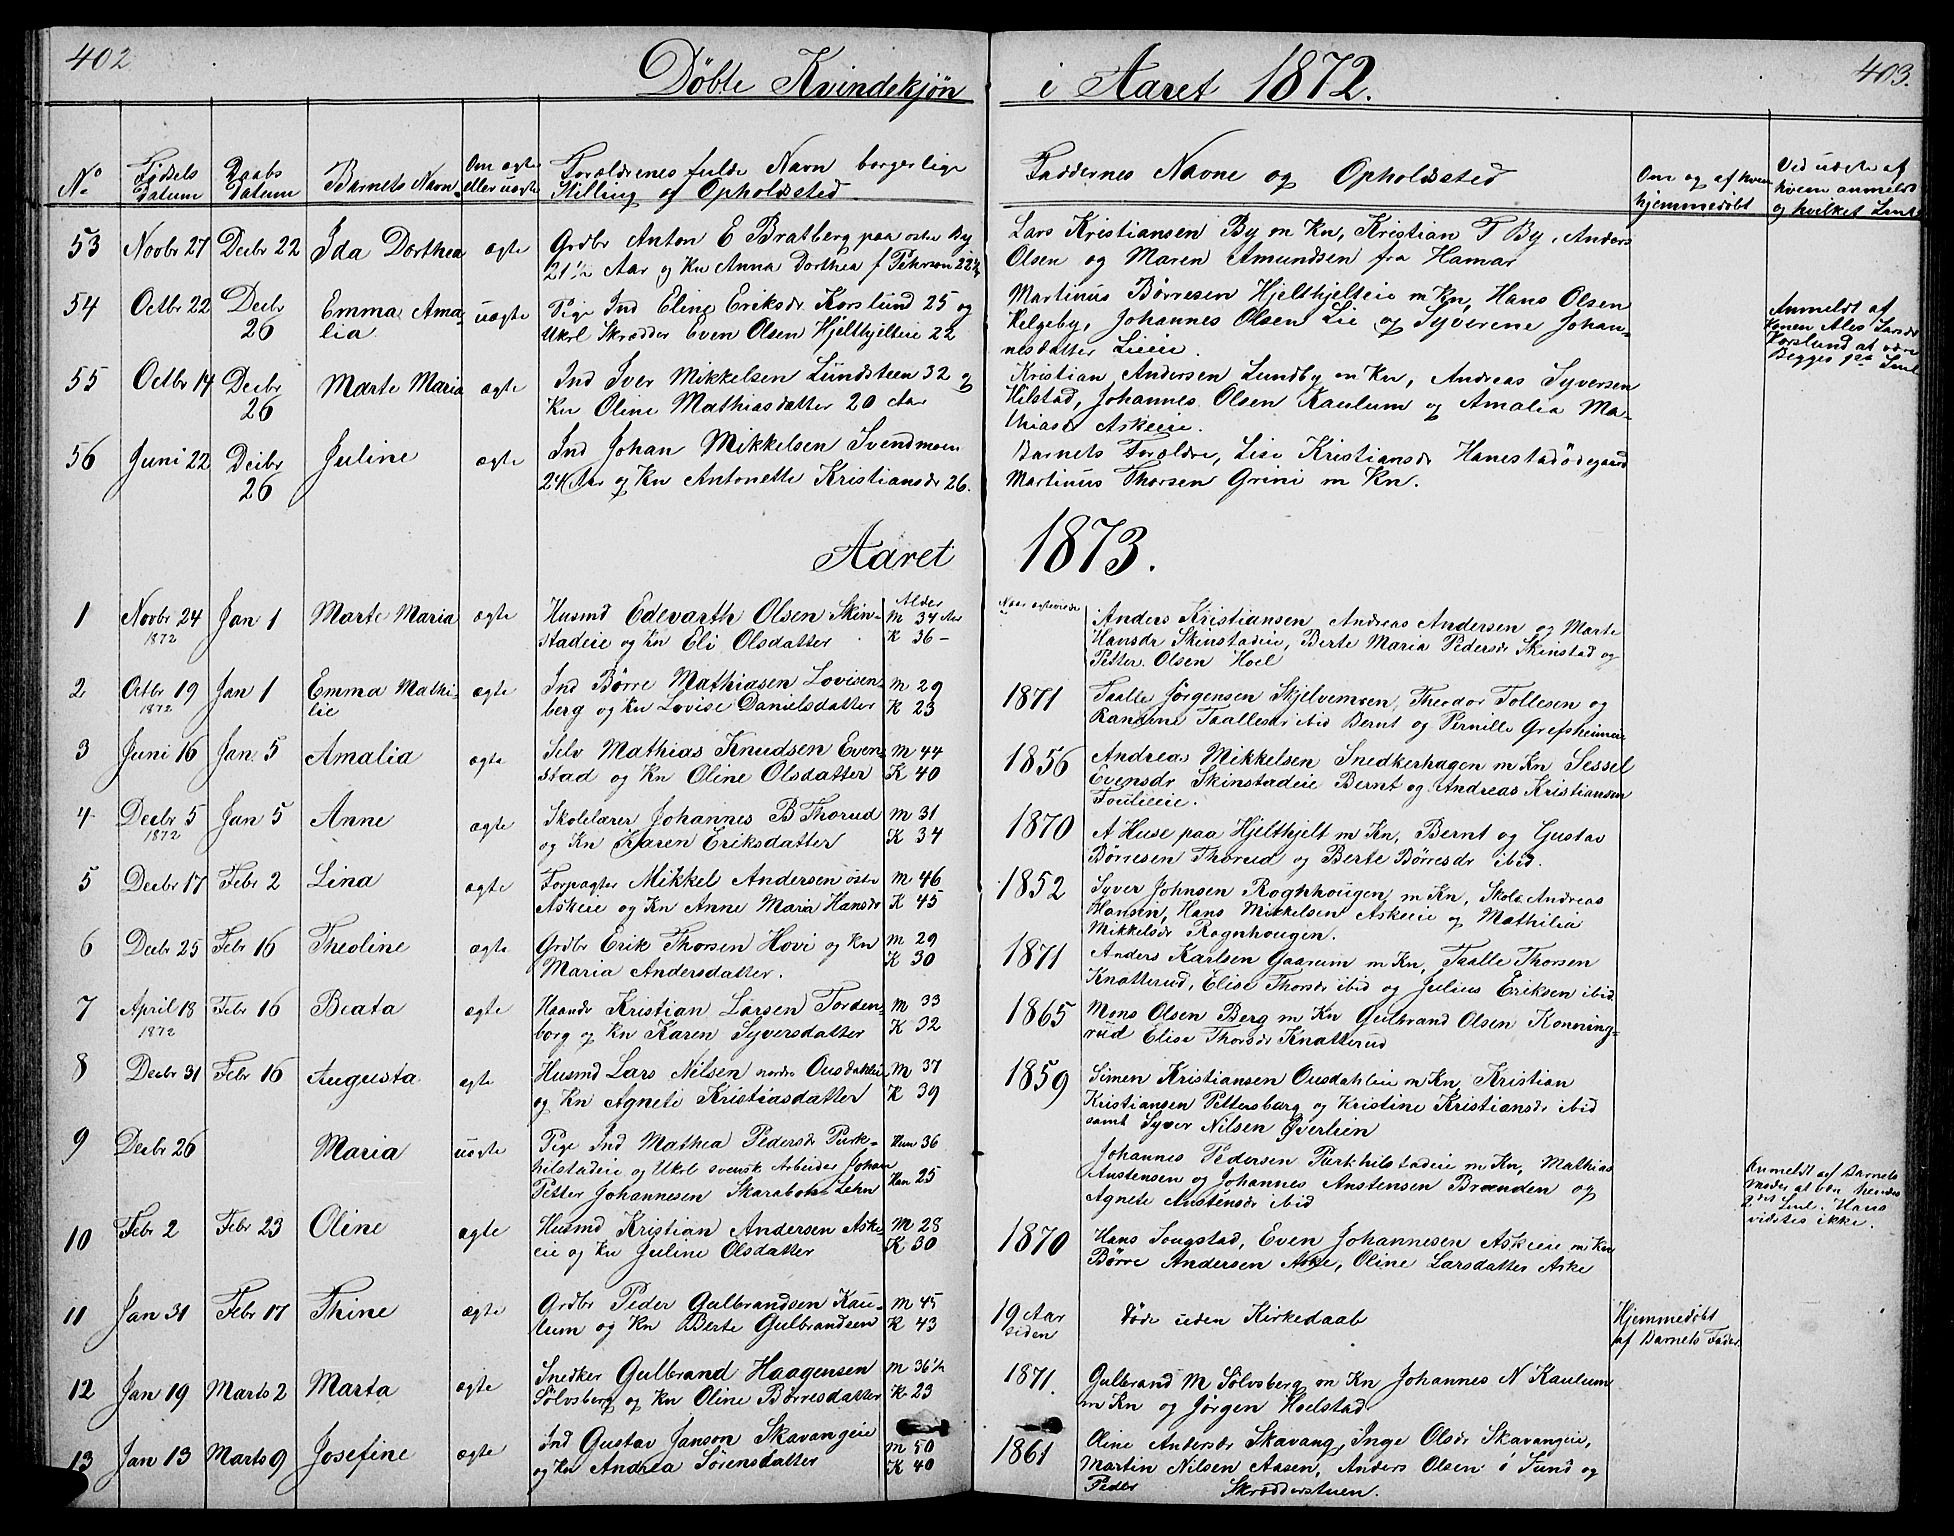 402
Døbte Kvindekjøn i Aaret 1872.
403.
No
Fødsels Datum
Daabs Datum
Barnets Navn
Om ægte eller uægte
Forældrenes fulde Navn borgerlige
Stilling og Opholdssted
Faddernes Navne og Opholdssted
Om og af hvem
hjemmedøbt
Ved uægte af
hvem anmeldt
og hvilket Leie
53 Novbr 27 Decbr 22 Ida Dorthea ægte Grdbr Anton E Bratberg paa østre By
21½ Aar og Kn Anna Dorthea f Pehrson 22½
Lars Kristiansen By m Kn, Kristian T By, Anders
Olsen og Maren Amundsen fra Hamar
54 Octbr 22 Decbr 26 Emma Ama-
lia uægte Pige Ind Eline Eriksdr Korslund 25 og
Ukrl Skrædder Even Olsen Hjelthjelteie 22
Martinus Børresen Hjelthjelteie m Kn, Hans Olsen
Helgeby, Johannes Olsen Lie og Syverine Johan-
nesdatter Lieeie.
Anmeldt af
Konen Ales Larsdr
Korslund at være
Begges 1ste Leie
55 Octbr 14 Decbr 26 Marte Maria ægte Ind Iver Mikkelsen Lundsteen 32 og
Kn Oline Mathiasdatter 20 Aar
Kristian Andersen Lundby m Kn, Andreas Syversen
Hilstad, Johannes Olsen Kaulum og Amalia Ma-
thiasdr Askeeie.
56 Juni 22 Decbr 26 Juline ægte Ind Johan Mikkelsen Svendmoen
24 Aar og Kn Antonette Kristiansdr 26.
Barnets Forældre, Lise Kristiansdr Hanestadødegaard
Martinus Thorsen Grini m Kn.
Aaret 1873.
Alder
Naar ægteviede
1 Novbr 24 1872 Jan 1 Marte Maria ægte Husmd Edevarth Olsen Skin- M 34 Aar
stadeie og Kn Eli Olsdatter K 36 -
Anders Kristiansen, Andreas Andersen og Marte
Hansdr Skinstadeie, Berte Maria Pedersdr Skinstad og
Petter Olsen Hoel
2 Octbr 19 1872 Jan 1 Emma Mathi-
lie ægte Ind Børre Mathiasen Lovisen- M 29
berg og Kn Lovise Danielsdatter K 23
1871 Taalle Jørgensen Skjelvemoen, Theodor Tollesen og
Randine Taallesdr ibid Bernt og Pernille Grefsheimeie
3 Juni 16 Jan. 5 Amalia ægte Selv Mathias Knudsen Even- M 44
stad og Kn Oline Olsdatter K 40
1856 Andreas Mikkelsen Snedkerhagen m Kn Sessel
Evensdr Skinstadeie Bernt og Andreas Kristiansen
4 Decbr 5 1872 Jan 5 Anne ægte Skolelærer Johannes B Thorud M 31
og Kn Karen Eriksdatter K 34
1870 A Huse paa Hjelthjelt m Kn, Bernt og Gustav
Børresen Thorud og Berte Børresdr ibid.
5 Decbr 17 Febr 2 Lina ægte Forpagter Mikkel Andersen østre M 46
Askeie og Kn Anne Maria Hansdr K 45
1852 Syver Johnsen Rognhougen m Kn, Skolel Andreas
Hansen, Hans Mikkelsen Askeeie og Mathilia
Mikkelsdr Rognhougen.
6 Decbr 25 Febr 16 Theoline ægte Grdbr Erik Thorsen Hovi og Kn M 29
Maria Andersdatter. K 30
1871 Anders Karlsen Gaarum m Kn, Taalle Thorsen
Knatterud, Elise Thorsdr ibid og Julius Eriksen ibid
7 April 18 1872 Febr 16 Beata ægte Haandv Kristian Larsen Torden- M 33
borg og Kn Karen Syversdatter K 32
1865 Mons Olsen Berg m Kn Gulbrand Olsen Konning-
rud Elise Thorsdr Knatterud
8 Decbr 31 Febr 16 Augusta ægte Husmd Lars Nilsen nordre Ousdahleie M 37
og Kn Agnete Kristiasdatter K 39
1859 Simen Kristiansen Ousdahleie m Kn, Kristian
Kristiansen Pettersborg og Kristine Kristiansdr ibid
samt Syver Nilsen Øverlien
9 Decbr 26 Maria uægte Pige Ind Mathea Pedersdr Purk- Hun 36
hilstadeie og Ukrl svensk Arbeider Johan
Petter Johannesen Skarabohs Lehn Han 25
Johannes Pedersen Purkhilstadeie m Kn, Mathias
Anstensen og Johannes Anstensen Brænden og
Agnete Anstensdr ibid
Anmeldt af Barnets
Moder at være hendes
2det Leie. Hans
vidstes ikke.
10 Febr 2 Febr 23 Oline ægte Husmd Kristian Andersen Aske- M 28
eie og Kn Juline Olsdatter K 30
1870 Hans Sougstad, Even Johannesen Askeeie m Kn
Børre Andersen Aske, Oline Larsdatter Aske
11 Jan 31 Febr 17 Thine ægte Grdbr Peder Gulbrandsen Kau- M 45
lum og Kn Berte Gulbrandsen K 43
19 Aar
siden Døde uden Kirkedaab
Hjemmedøbt
af Barnets Fader
12 Jan 19 Marts 2 Marta ægte Snedker Gulbrand Haagensen M 36½
Sølvsberg og Kn Oline Børresdatter K 23
1871. Gulbrand M Sølvsberg m Kn Johannes N Kaulum
m Kn og Jørgen Hoelstad
13 Jan 13 Marts 9 Josefine ægte Ind Gustav Janson Skavangeie M 50
og Kn Andrea Sørensdatter K 40
1861 Oline Andersdr Skavang, Inge Olsdr Skavangeie,
Martin Nilsen Aasen, Anders Olsen i Sund og
Peder Skrædderstuen.